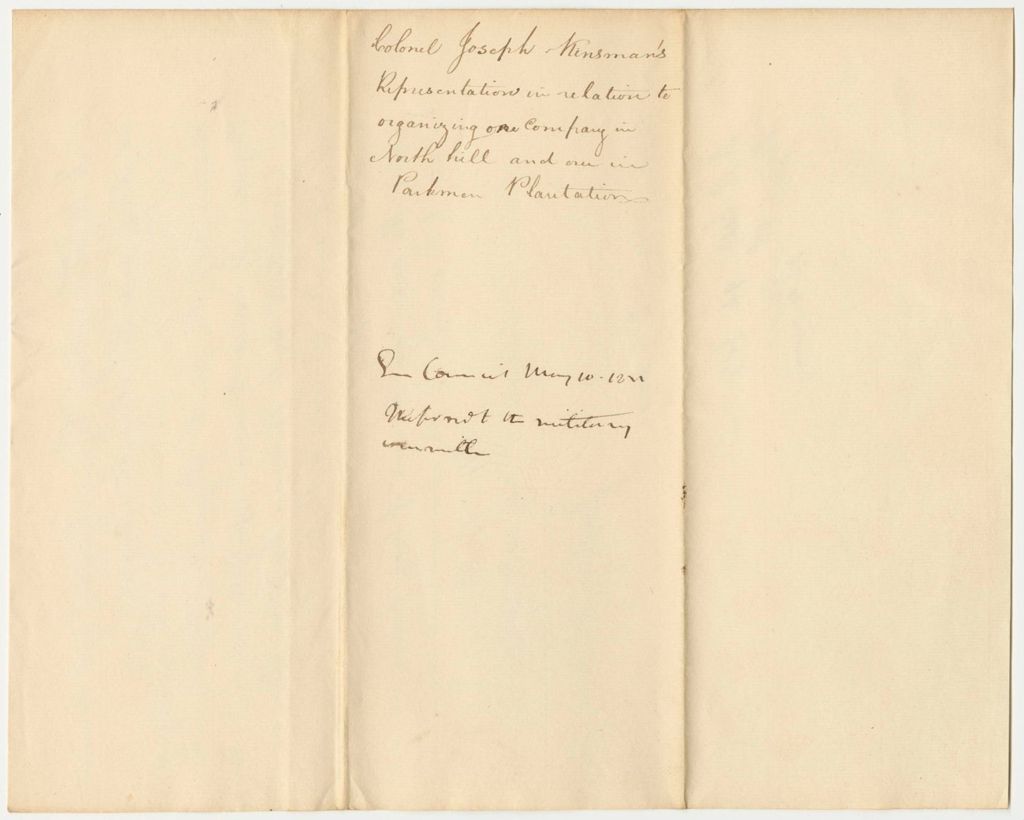 Colonel Joseph Kinsman's
Representation in relation to
organizing one Company in
North hill and one in
Parkman Plantation
In Council May 10. 1821
Referred to the military
committee